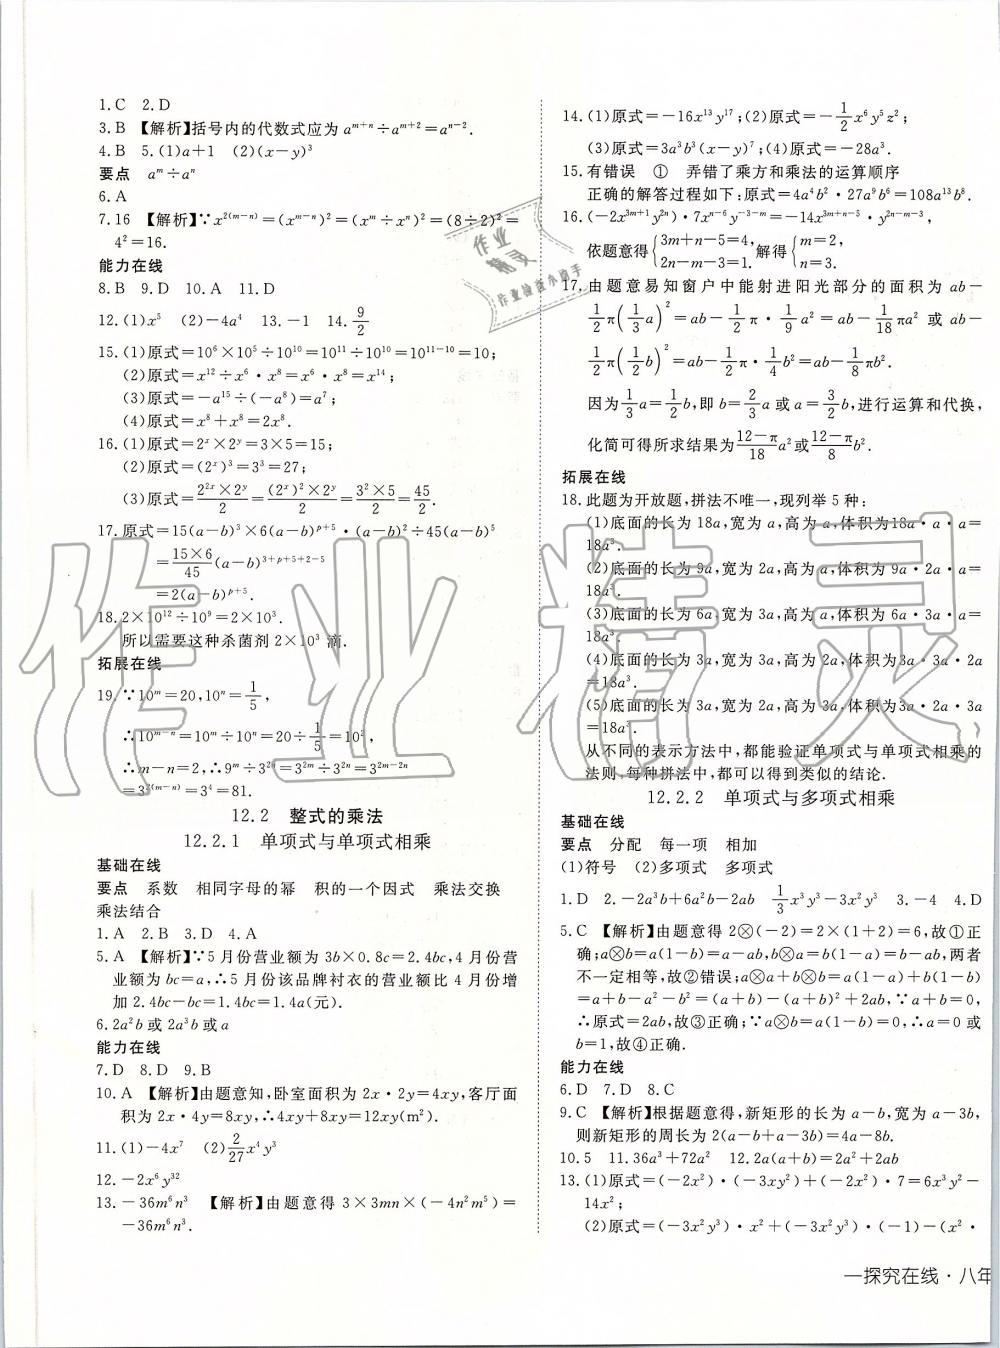 1.C　2.D
3.B　【解析】括号内的代数式应为 a^{m+n}÷a^{m+2}=a^{n-2}.
4.B　5.(1)a+1　(2)(x-y)³
要点　a^m÷a^n
6.A
7.16　【解析】∵x^{2(m-n)}=(x^{m-n})²=(x^m÷x^n)²=(8÷2)²=
4²=16.
能力在线
8.B　9.D　10.A　11.D
12.(1)x⁵　(2)-4a⁴　13.-1　14.9/2
15.(1)原式=10⁶×10⁵÷10¹⁰=10¹¹÷10¹⁰=10^{11-10}=10;
(2)原式=x¹²÷x⁶·x⁸=x⁶·x⁸=x¹⁴;
(3)原式=-a¹⁵÷(-a⁸)=a⁷;
(4)原式=x⁸+x⁸=2x⁸.
16.(1)原式=2^x×2^y=3×5=15;
(2)原式=(2^x)³=3³=27;
(3)原式=(2^{2x}×2^y)/2=((2^x)²×2^y)/2=(3²×5)/2=45/2.
17.原式=15(a-b)³×6(a-b)^{p+5}·(a-b)²÷45(a-b)⁵
=(15×6)/45(a-b)^{3+p+5+2-5}
=2(a-b)^{p+5}.
18.2×10¹²÷10⁹=2×10³.
所以需要这种杀菌剂 2×10³ 滴.
拓展在线
19.∵10^m=20,10^n=1/5,
∴10^{m-n}=10^m÷10^n=20÷1/5=10²,
∴m-n=2,∴9^m÷3^{2n}=3^{2m}÷3^{2n}=3^{2m-2n}
=3^{2(m-n)}=3⁴=81.
12.2　整式的乘法
12.2.1　单项式与单项式相乘
基础在线
要点　系数　相同字母的幂　积的一个因式　乘法交换
乘法结合
1.A　2.B　3.D　4.A
5.A　【解析】∵5 月份营业额为 3b×0.8c=2.4bc,4 月份营
业额为 bc=a,∴5 月份该品牌衬衣的营业额比 4 月份增
加 2.4bc-bc=1.4bc=1.4a(元).
6.2a²b 或 2a³b 或 a
能力在线
7.D　8.D　9.B
10.A　【解析】由题意知,卧室面积为 2x·2y=4xy,客厅面
积为 2x·4y=8xy,∴4xy+8xy=12xy(m²).
11.(1)-4x⁷　(2)2/27x⁴y³
12.-2x⁶y³²
13.-36m⁶n³　【解析】由题意得 3×3mn×(-4n²m⁵)=
-36m⁶n³.
14.(1)原式=-16x¹³y¹⁷;(2)原式=-1/2x⁶y⁵z²;
(3)原式=3a³b³(x-y)⁷;(4)原式=-28a³.
15.有错误　①　弄错了乘方和乘法的运算顺序
正确的解答过程如下:原式=4a⁴b²·27a⁹b⁶=108a¹³b⁸.
16.(-2x^{3m+1}y^{2n})·7x^{n-6}y^{-3-m}=-14x^{3m+n-5}·y^{2n-m-3},
依题意得{3m+n-5=4, 2n-m-3=1.解得{m=2, n=3.
17.由题意易知窗户中能射进阳光部分的面积为 ab-
1/2π(1/3a)²=ab-1/2π·1/9a²=ab-1/18πa² 或 ab-
1/2π(1/2b)²=ab-1/2π·1/4b²=ab-1/8πb².
因为1/3a=1/2b,即 b=2/3a 或 a=3/2b,进行运算和代换,
化简可得所求结果为(12-π)/18a²或(12-π)/8b².
拓展在线
18.此题为开放题,拼法不唯一,现列举 5 种:
(1)底面的长为 18a,宽为 a,高为 a,体积为18a·a·a=
18a³.
(2)底面的长为 9a,宽为 2a,高为 a,体积为 9a·2a·a=
18a³.
(3)底面的长为 6a,宽为 3a,高为 a,体积为 6a·3a·a=
18a³.
(4)底面的长为 3a,宽为 3a,高为 2a,体积为3a·3a·2a
=18a³.
(5)底面的长为 3a,宽为 2a,高为 3a,体积为3a·2a·3a
=18a³.
从不同的表示方法中,都能验证单项式与单项式相乘的
法则,每种拼法中,都可以得到类似的结论.
12.2.2　单项式与多项式相乘
基础在线
要点　分配　每一项　相加
(1)符号　(2)多项式　多项式
1.D　2.-2a³b+6a²b-2ab　1/3x³y³-3x²y³　3.-4　4.D
5.C　【解析】由题意得 2⊗(-2)=2×(1+2)=6,故①正
确;a⊗b=a(1-b)=a-ab,b⊗a=b(1-a)=b-ab,两者
不一定相等,故②错误;a⊗a+b⊗b=a(1-a)+b(1-b)
=a+b-a²-b²=(a+b)-(a+b)²+2ab,∵a+b=0,
∴原式=2ab,故③正确;∵a⊗b=a(1-b)=0,∴a=0 或
b=1,故④正确.
能力在线
6.D　7.D　8.C
9.C　【解析】根据题意得,新矩形的长为 a-b,宽为 a-3b,
则新矩形的周长为 2(a-b+a-3b)=4a-8b.
10.5　11.36a³+72a²　12.2a(a+b)=2a²+2ab
13.(1)原式=(-2x²)·(-3xy²)+(-2x²)·7=6x³y²-
14x²;
(2)原式=(-3x²y³)·x²+(-3x²y³)·(-1)-(x²·
一探究在线·八年
作业精灵
作业精灵
作业检查小助手